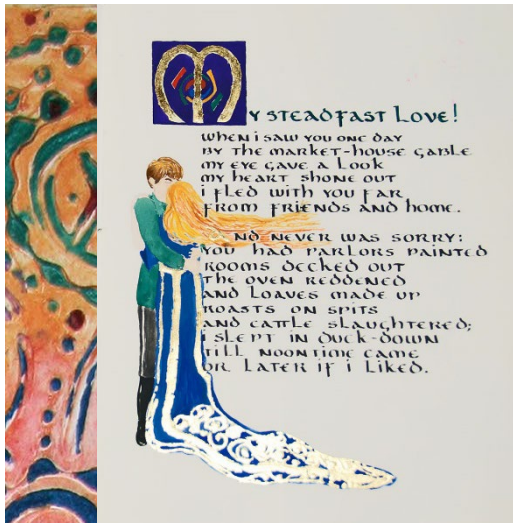 My steadfast Love!
when i saw you one day
by the market-house gable
my eye gave a look
my heart shone out
i fled with you far
from friends and home.
nd never was sorry:
you had parlors painted
rooms decked out
the oven reddened
and loaves made up
roasts on spits
and cattle slaughtered;
i slept in duck-down
till noontime came
or later if i liked.